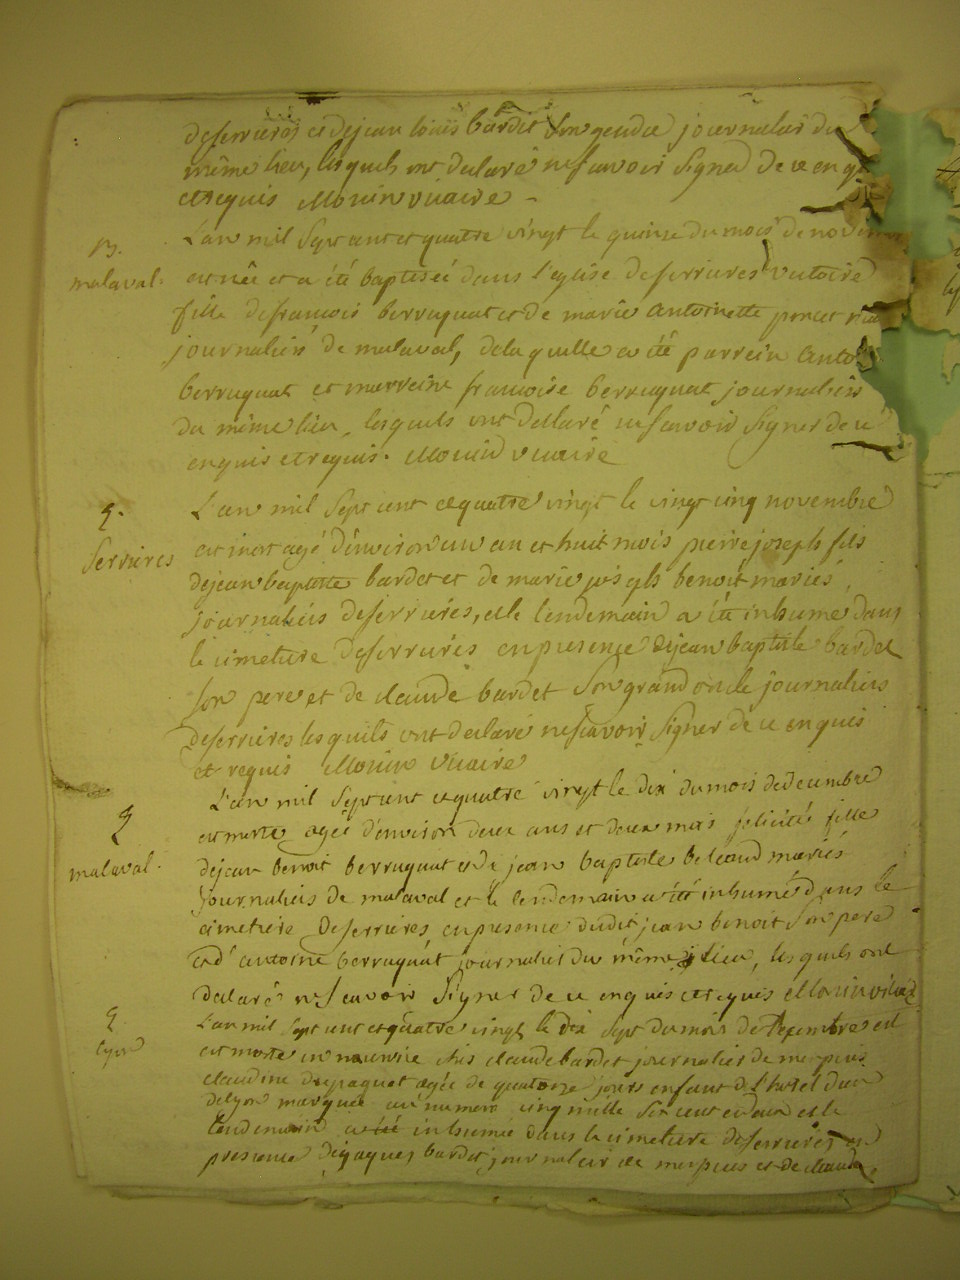 deserrieres et dejean louis bardet son gendre journalier du
même lieu, lesquels ont declaré nesavoir signer de ce enq
etrequis Mouin vicaire
B.
malaval.
L'an mil sept cent et quatre vingt le quinse du mois de novem
est née et a été baptiseé dans l'eglise deserrieres victoire
fille defrancois berruquat et de marie antoinette poncet
journaliers de malaval, dela quelle a été parrein anto
berruquat et marreine francoise berruquat journaliers
du même lieu, lesquels ont declaré nesavoir signer de ce
enquis etrequis. Mouin vicaire
S.
Serrieres
L'an mil sept cent et quatre vingt le vingt cinq novembre
est mort agé d'environ un an et huit mois pierre joseph fils
dejean baptiste bardet et de marie benoit mariés
journaliers deserrieres, et le lendemain a été inhumé dans
le cimetiere deserrieres en presence dejean baptiste bardet
son pere et de claude bardet son grand oncle journaliers
deserrieres lesquels ont declaré nesavoir signer de ce enquis
et requis Mouin vicaire
S
malaval.
L'an mil sept cent et quatre vingt le dix du mois de decembre
est morte ageé d'environ deux ans et deux mois felicité fille
dejean benoit berruquat et de jean baptiste mariés
journaliers de malaval et le lendemain a été inhumé dans le
cimetiere deserrieres en presence dudit jean benoit son pere
et d'antoine berruquat journalier du même lieu, lesquels ont
declaré nesavoir signer de ce enquis et requis Mouin vicaire
S.
lyon
L'an mil sept cent et quatre vingt le dix sept du mois de decembre est
est morte en nourrice chés claude bardet journalier de
claudine agée de quatorze jours enfant de l'hotel dieu
delyon marquée au numero cinq mille six cent et le
lendemain a été inhumée dans le cimetiere deserrieres en
presence dejaques bardet journalier de et de claude